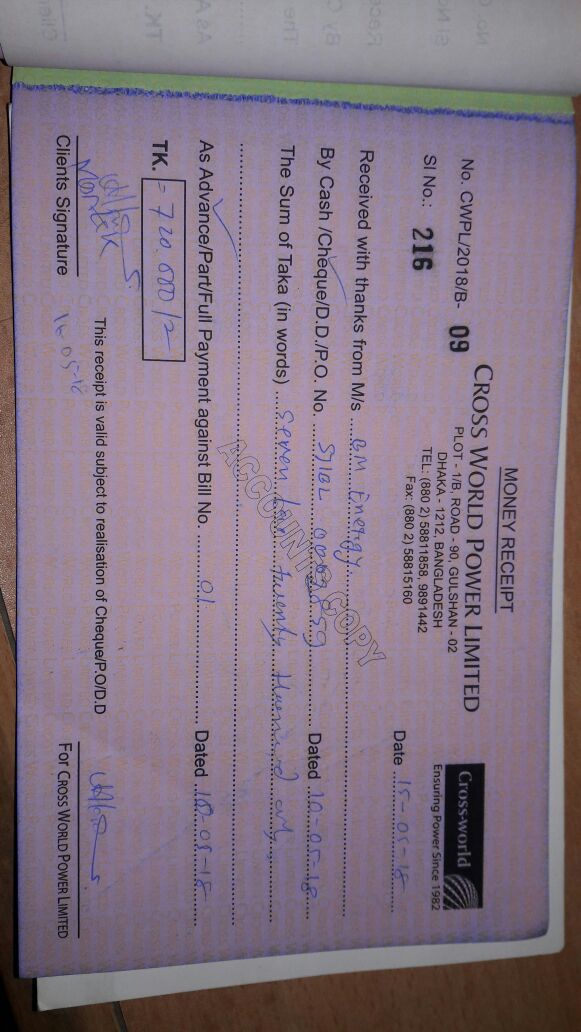 MONEY RECEIPT
CROSS WORLD POWER LIMITED
PLOT - 1/B, ROAD - 90, GULSHAN - 02
DHAKA - 1212, BANGLADESH
TEL: (880 2) 58811858, 9891442
Fax: (880 2) 58815160
Cross-world
Ensuring Power Since 1982
No. CWPL/2018/B- 09
Sl No.: 216
Date 15-05-18
Received with thanks from M/s BM Energy.
By Cash /Cheque/D.D./P.O. No. SJIBL Dated 10-05-18
The Sum of Taka (in words) Seven lac twenty only
ACCOUNTS COPY
As Advance/Part/Full Payment against Bill No. 01 Dated
TK.
Clients Signature
This receipt is valid subject to realisation of Cheque/P.O/D.D
For CROSS WORLD POWER LIMITED